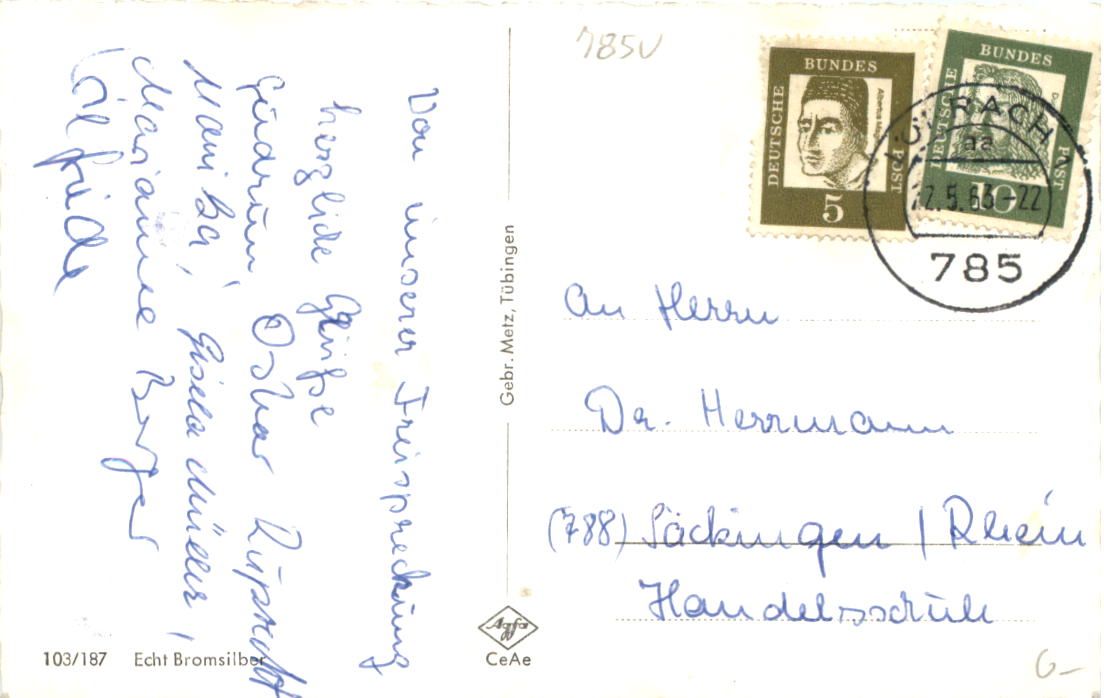 Von unserer Freisprechung
herzliche Grüße
Gudrun, Oskar
Marika, Gisela Müller,
Marianne Berger
Elfriede
103/187 Echt Bromsilber
Gebr. Metz, Tübingen
Agfa
CeAe
785
DEUTSCHE BUNDES POST
Albertus Magnus
5
DEUTSCHE BUNDES POST
10
LÖRRACH
aa
22.5.63-22
785
An Herrn
Dr. Herrmann
(788) Säckingen / Rhein
Handelsschule
6-